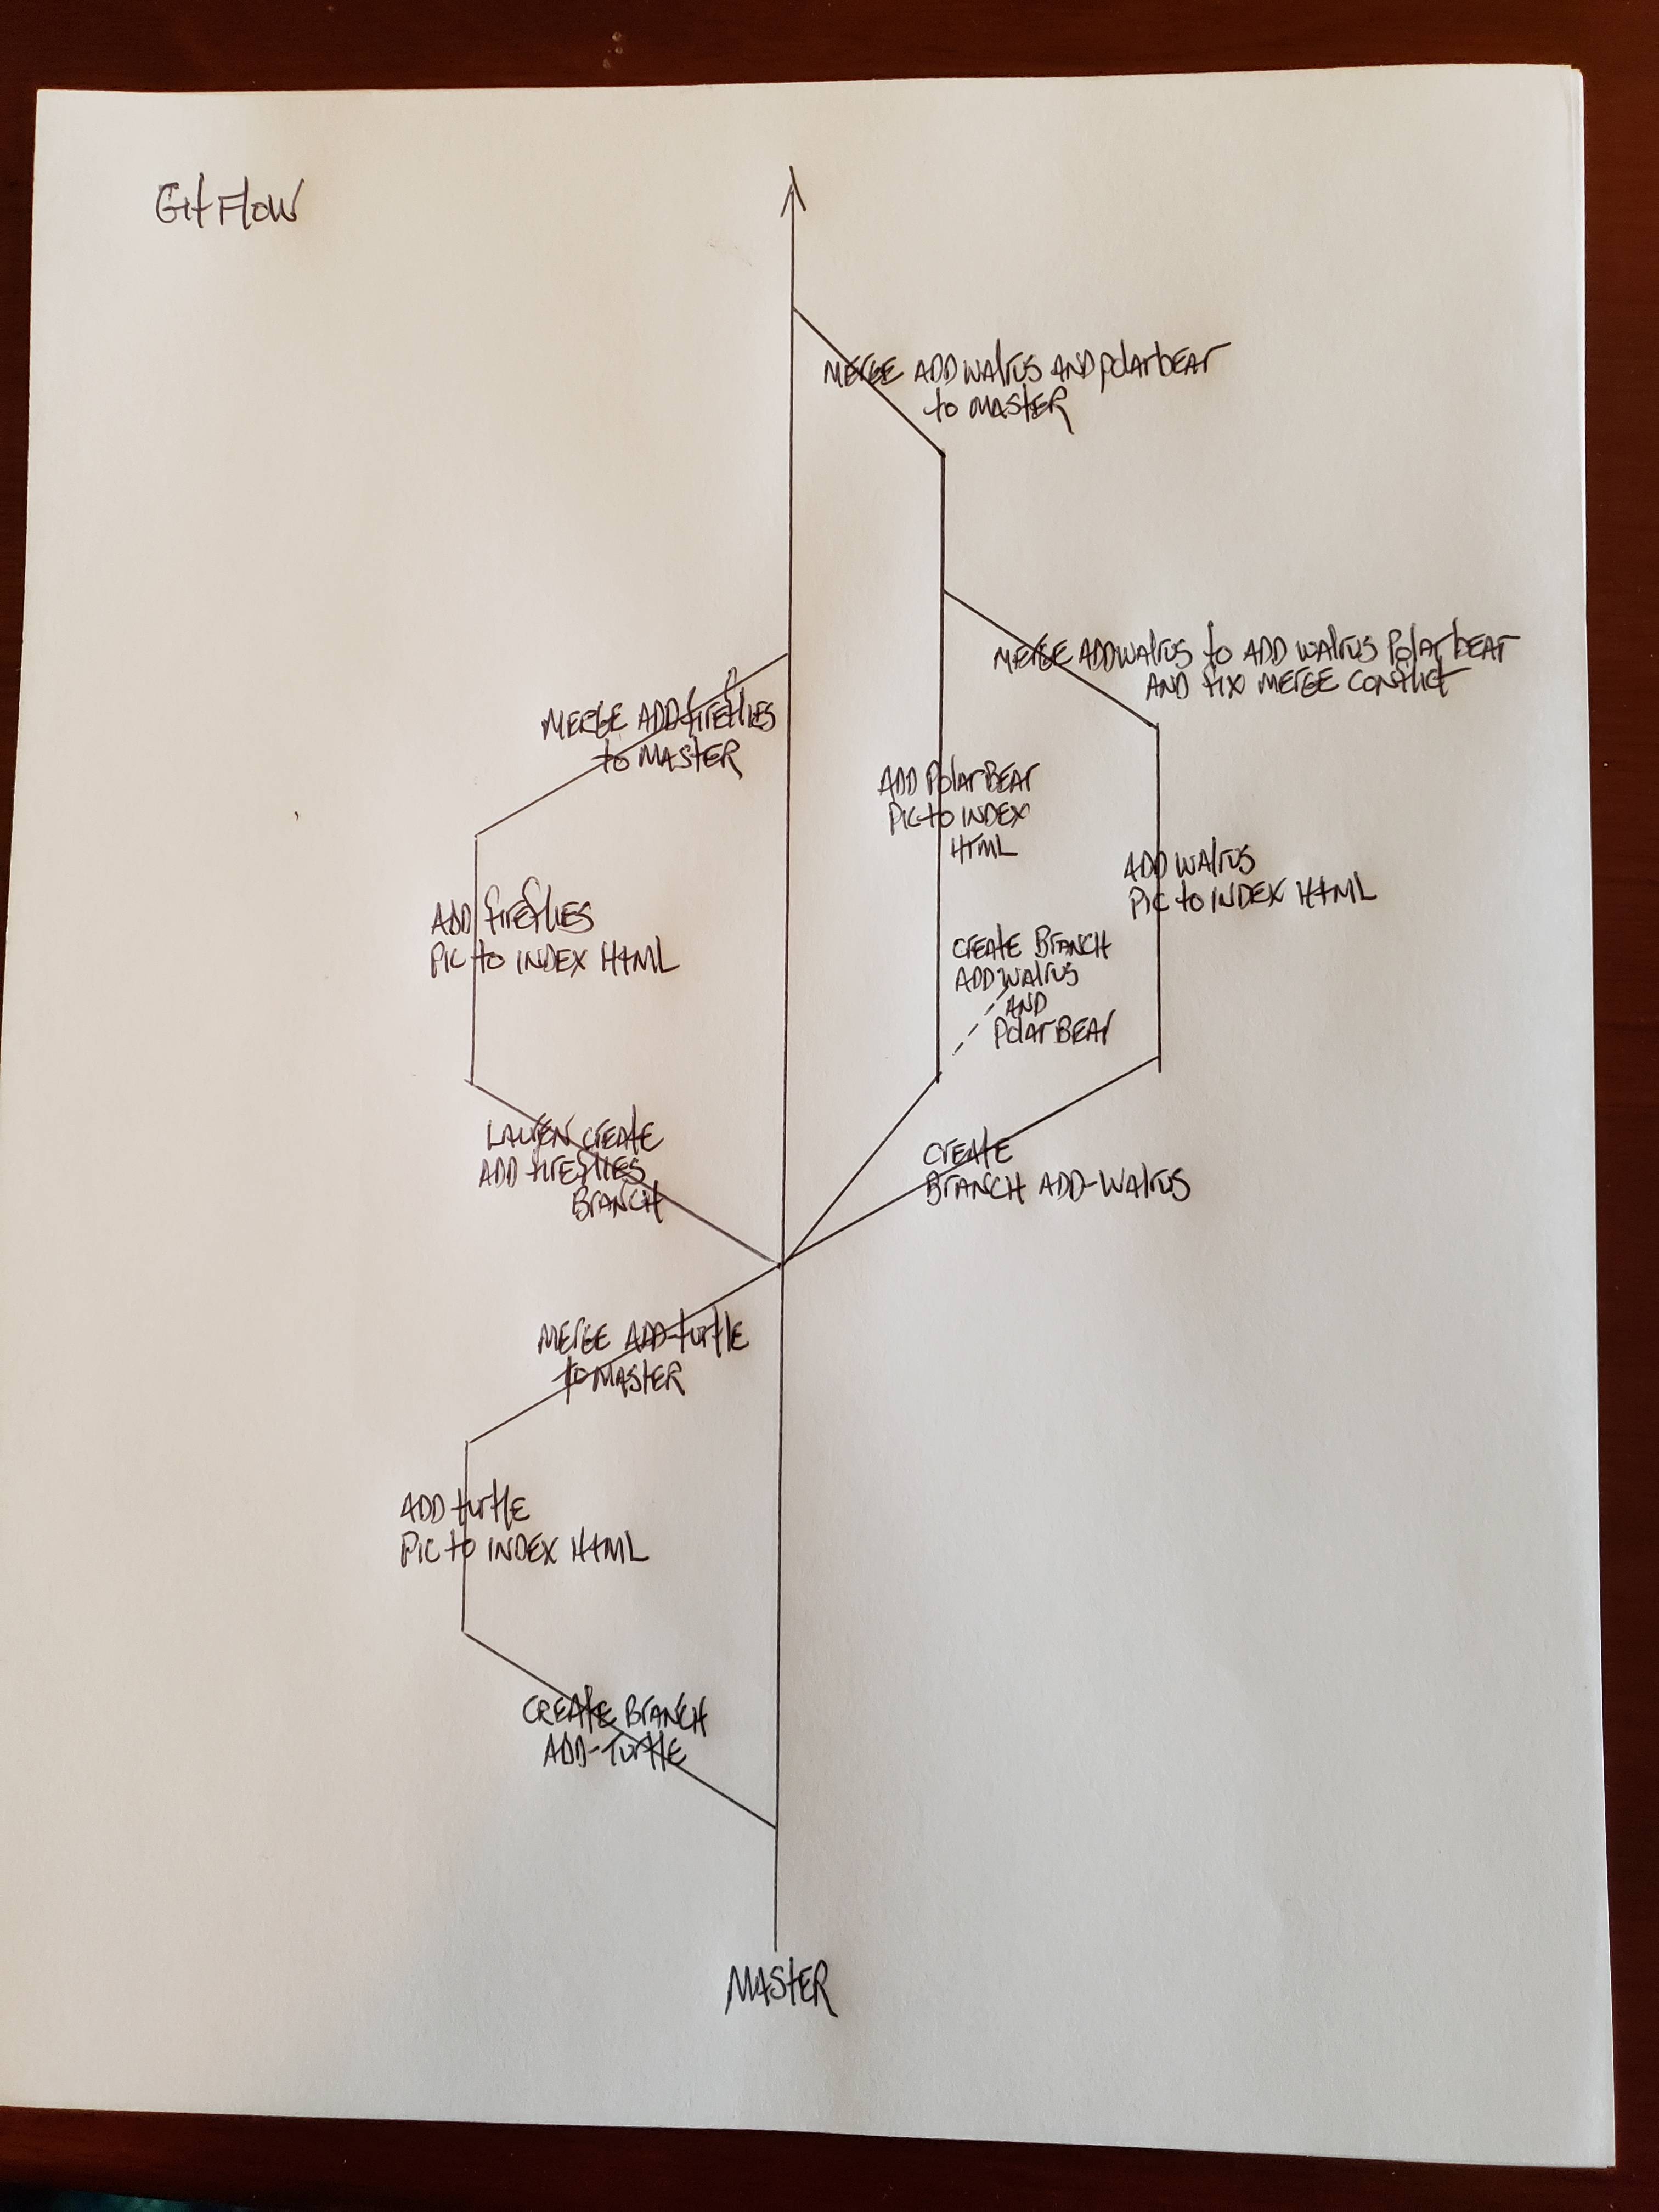 Git Flow
MERGE ADD WALRUS AND POLARBEAR
to MASTER
MERGE ADDWALRUS to ADD WALRUS POLARBEAR
AND FIX MERGE CONFLICT
MERGE ADD-FIREFLIES
to MASTER
ADD POLARBEAR
PIC to INDEX
HTML
ADD WALRUS
PIC to INDEX HTML
ADD FIREFLIES
PIC to INDEX HTML
CREATE BRANCH
ADD WALRUS
AND
POLARBEAR
LAUREN CREATE
ADD FIREFLIES
BRANCH
CREATE
BRANCH ADD-WALRUS
MERGE ADD-TURTLE
to MASTER
ADD TURTLE
PIC to INDEX HTML
CREATE BRANCH
ADD-TURTLE
MASTER